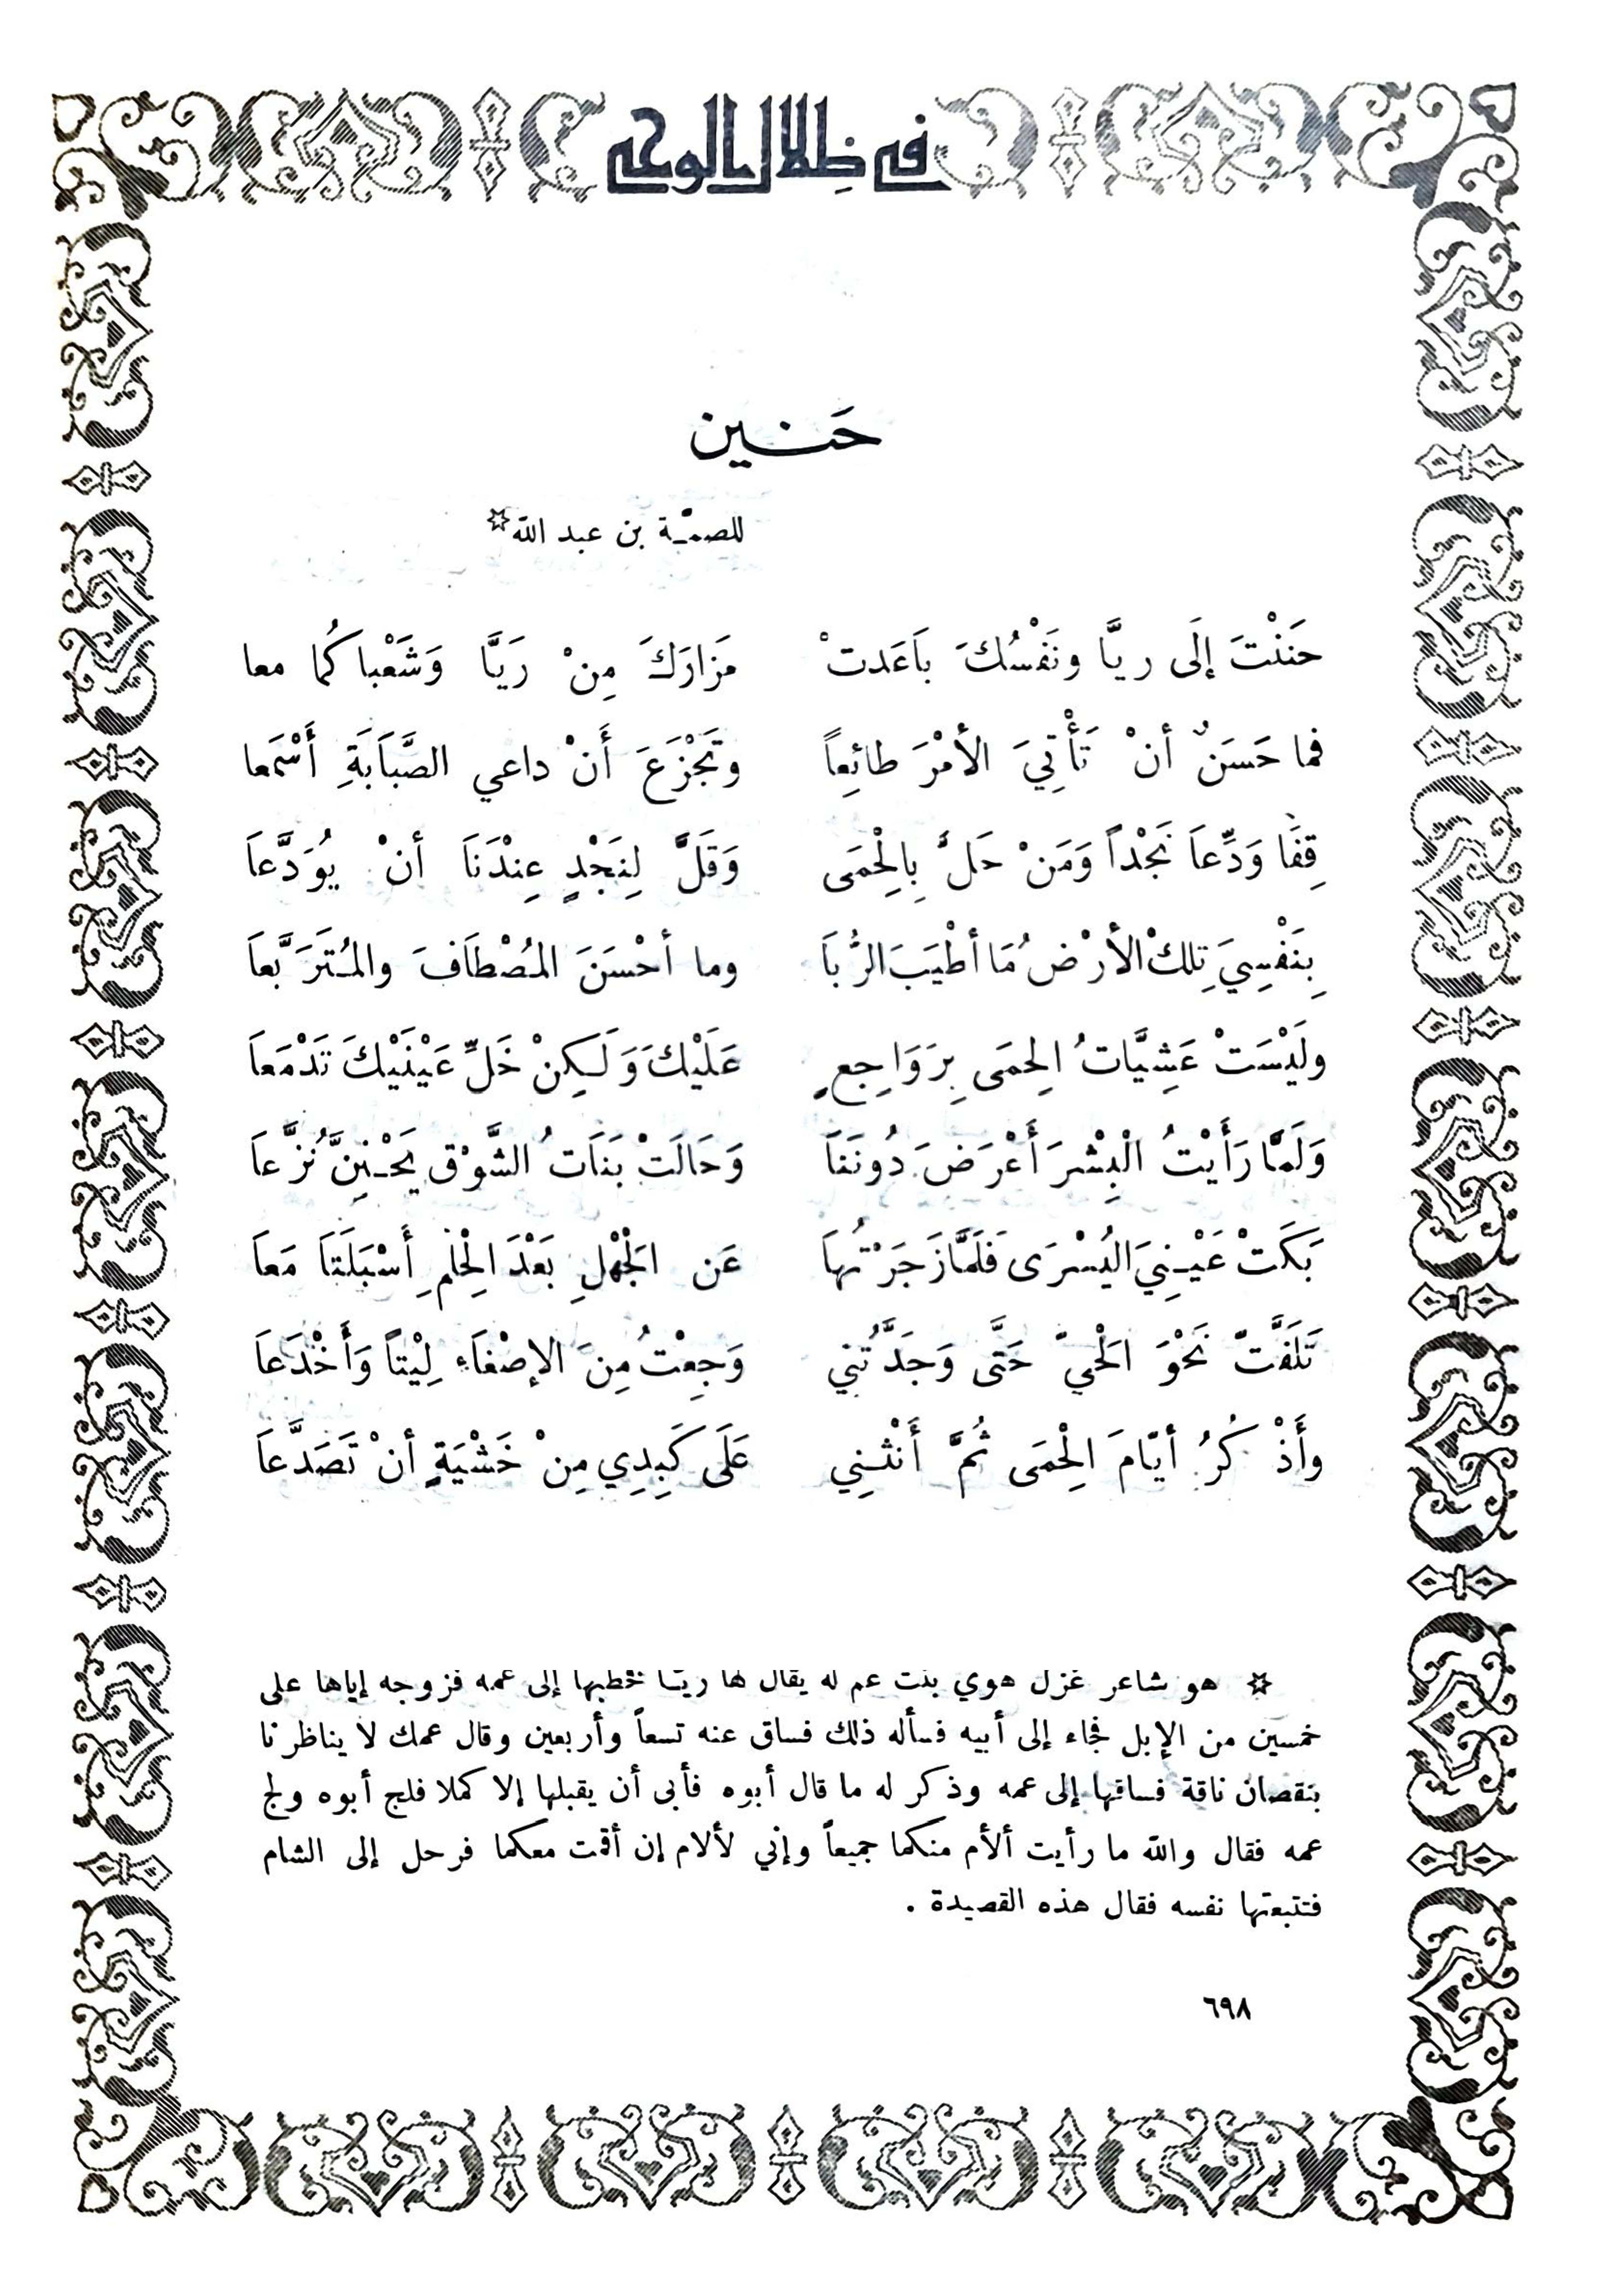 في ظلال الوحي
حَنين
للصمّة بن عبد الله☆
حَننْتَ إِلَى ريَّا ونَفْسُكَ بَاعَدتْ مَزارَكَ مِنْ رَيَّا وَشَعْباكُما معا
فما حَسَنٌ أنْ تَأْتِيَ الأمْرَ طائِعاً وتَجْزَعَ أَنْ داعي الصَّبَابَةِ أَسْمَعا
قِفَا وَدِّعَا نَجْداً وَمَنْ حَلَّ بِالْحِمَى وَقَلَّ لِنَجْدٍ عِنْدَنَا أنْ يُوَدَّعَا
بِنَفْسِيَ تِلكْ الأرْضُ مَا أطْيَبَ الرُّبَا وما أحْسَنَ المُصْطَافَ والمُتَرَبَّعَا
ولَيْسَتْ عَشِيَّاتُ الحِمَى بِرَوَاجِعٍ عَلَيْكَ وَلَكِنْ خَلِّ عَيْنَيْكَ تَدْمَعَا
وَلَمَّا رَأَيْتُ الْبِشْرَ أَعْرَضَ دُونَنَا وَحَالَتْ بَنَاتُ الشَّوْقِ يَحْنِنَّ نُزَّعَا
بَكَتْ عَيْنِيَ اليُسْرَى فَلَمَّا زَجَرْتُهَا عَن الجَهْلِ بَعْدَ الحِلْمِ أَسْبَلَتَا مَعَا
تَلَفَّتُّ نَحْوَ الحَيِّ حَتَّى وَجَدْتُني وَجِعْتُ مِنَ الإصْغَاءِ لِيْتاً وَأَخْدَعَا
وأَذْكُرُ أيّامَ الحِمَى ثُمَّ أَنْثَنِي عَلَى كَبِدِي مِنْ خَشْيَةٍ أنْ تَصَدَّعَا
☆ هو شاعر غزل هوي بنت عم له يقال لها ريّا خطبها إلى عمه فزوجه إياها على
خمسين من الإبل فجاء إلى أبيه فسأله ذلك فساق عنه تسعاً وأربعين وقال عمك لا يناظرنا
بنقصان ناقة فساقها إلى عمه وذكر له ما قال أبوه فأبى أن يقبلها إلا كملا فلج أبوه ولج
عمه فقال والله ما رأيت ألأم منكما جميعاً وإني لألام إن أقمت معكما فرحل إلى الشام
فتتبعتها نفسه فقال هذه القصيدة .
٦٩٨